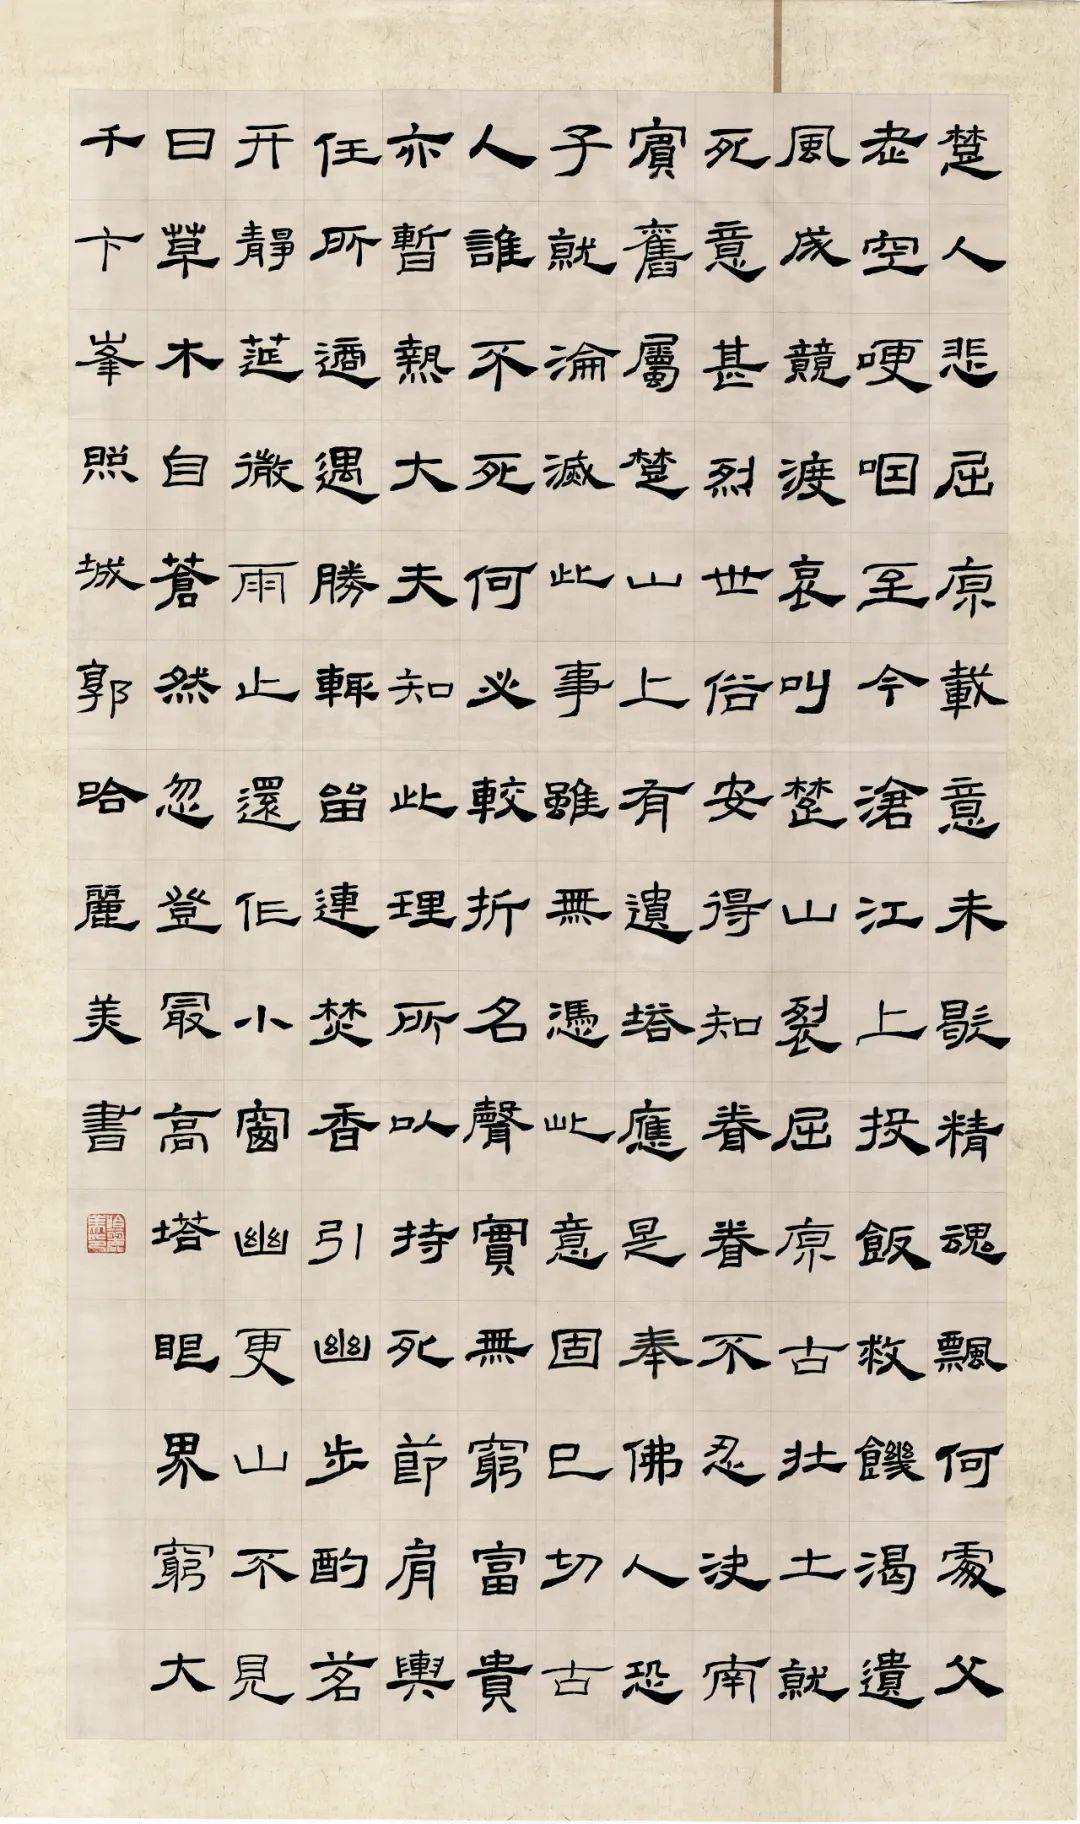 楚人悲屈原載意未歇精魂飄何處父
老空哽咽至今滄江上投飯救饑渴遺
風成競渡哀叫楚山裂屈原古壯士就
死意甚烈世俗安得知眷眷不忍決南
賓舊屬楚山上有遺塔應是奉佛人恐
子就淪滅此事雖無憑此意固已切古
人誰不死何必較折名聲實無窮富貴
亦暫熱大夫知此理所以持死節肩輿
任所適遇勝輒留連焚香引幽步酌茗
开靜莚微雨止還作小窗幽更山不見
日草木自蒼然忽登最高塔眼界窮大
千卞峯照城郭哈麗美書